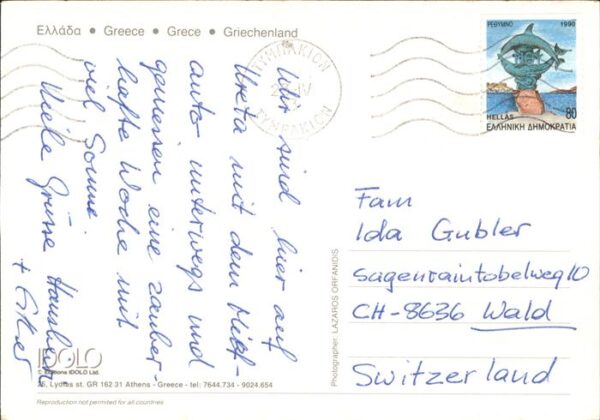 Ελλάδα • Greece • Grece • Griechenland
ΤΥΜΠΑΚΙΟΝ
IV
ΤΥΜΠΑΚΙΟΝ
ΡΕΘΥΜΝΟ 1990
HELLAS 80
ΕΛΛΗΝΙΚΗ ΔΗΜΟΚΡΑΤΙΑ
Wir sind hier auf
Kreta mit dem Miet-
auto unterwegs und
geniessen eine zauber-
hafte Woche mit
viel Sonne.
Viele Grüsse
+ Esther
Fam
Ida Gubler
Sagenraintobelweg 10
CH-8636 Wald
Switzerland
Photographer: LAZAROS ORFANIDIS
IDOLO
Editions IDOLO Ltd.
Lydias st. GR 162 31 Athens - Greece - tel: 7644.734 - 9024.654
Reproduction not permited for all countries